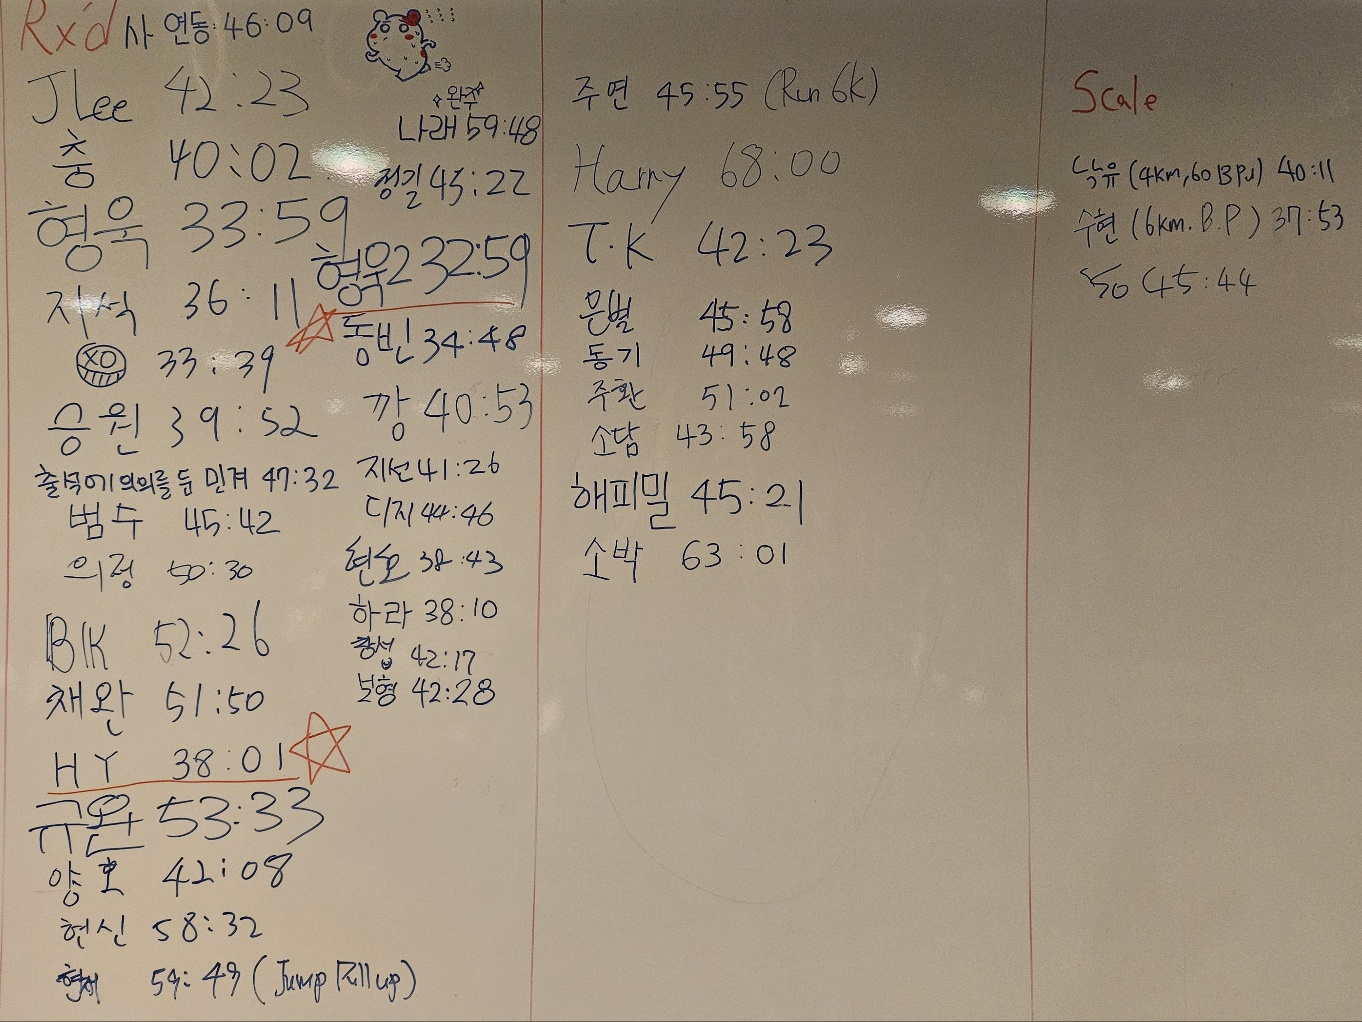 Rx'd
사 연동 46:09
Jlee 42:23
충 40:02
형욱 33:59
지석 36:11
XO 33:39
승원 39:52
출석에 의의를 둔 민겨 47:32
범수 45:42
의정 50:30
BK 52:26
채완 51:50
HY 38:01
규완 53:33
양호 42:08
현신 58:32
59:49 (Jump Pull up)
완주
나래 59:48
정길 45:22
형욱2 32:59
동빈 34:48
깡 40:53
지선 41:26
디지 44:46
현호 38:43
하라 38:10
42:17
보형 42:28
주연 45:55 (Run 6K)
Harry 68:00
T.K 42:23
문별 45:58
동기 49:48
주환 51:02
소담 43:58
해피밀 45:21
소박 63:01
Scale
낙유 (4km, 60 B.P.J) 40:11
수현 (6km. B.P) 37:53
50 45:44